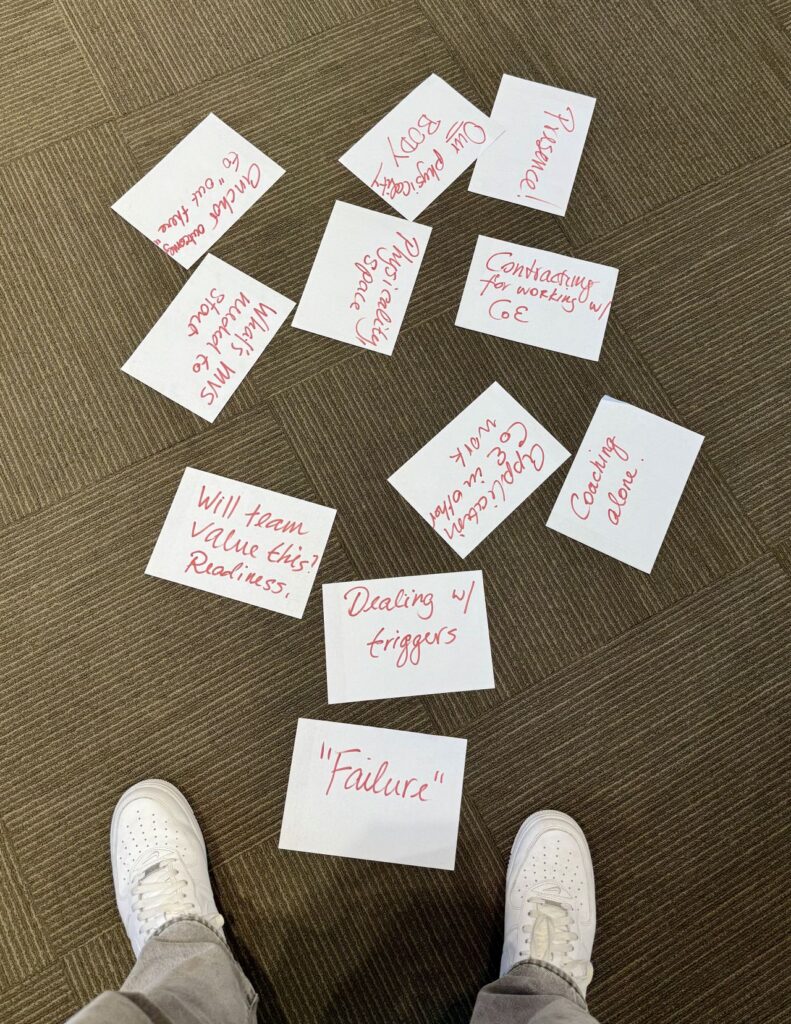 Our physicality
BODY
Presence!
anchor outcomes
to "out there"
Physicality
Space
Contracting
for working w/
CoE
What's MVS
needed to
Start
application
CoE in other
work
Coaching
alone.
Will team
value this?
Readiness.
Dealing w/
triggers
"Failure"